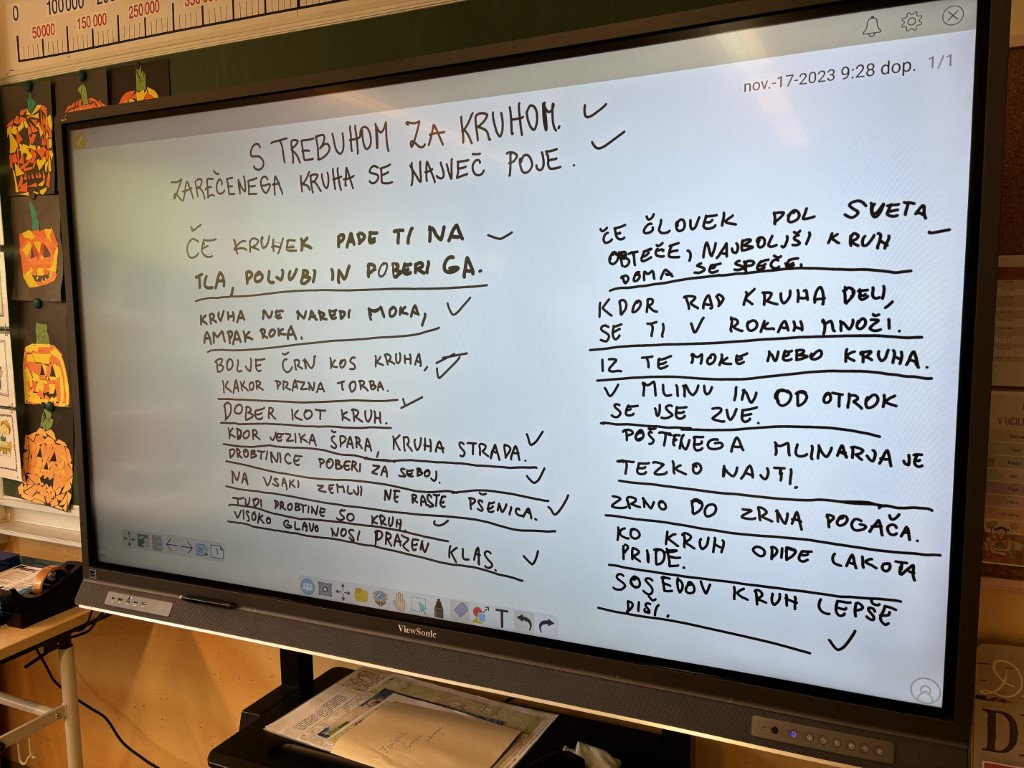 0
100 000
200 000
50 000
150 000
250 000
350
nov.-17-2023 9:28 dop. 1/1
S TREBUHOM ZA KRUHOM.
ZAREČENEGA KRUHA SE NAJVEČ POJE.
ČE KRUHEK PADE TI NA
TLA, POLJUBI IN POBERI GA.
KRUHA NE NAREDI MOKA,
AMPAK ROKA.
BOLJE ČRN KOS KRUHA,
KAKOR PRAZNA TORBA.
DOBER KOT KRUH.
KDOR JEZIKA ŠPARA, KRUHA STRADA.
DROBTINICE POBERI ZA SEBOJ.
NA VSAKI ZEMLJI NE RASTE PŠENICA.
TUDI DROBTINE SO KRUH.
VISOKO GLAVO NOSI PRAZEN KLAS.
ČE ČLOVEK DOL SVETA
OBTEČE, NAJBOLJŠI KRUH
DOMA SE SPEČE.
KDOR RAD KRUHA DELI,
SE TI V ROKAH MNOŽI.
IZ TE MOKE NEBO KRUHA.
V MLINU IN OD OTROK
SE VSE ZVE.
POŠTENEGA MLINARJA JE
TEZKO NAJTI.
ZRNO DO ZRNA POGAČA.
KO KRUH ODIDE LAKOTA
PRIDE.
SOSEDOV KRUH LEPŠE
DIŠI.
T
ViewSonic
V UČIL
D